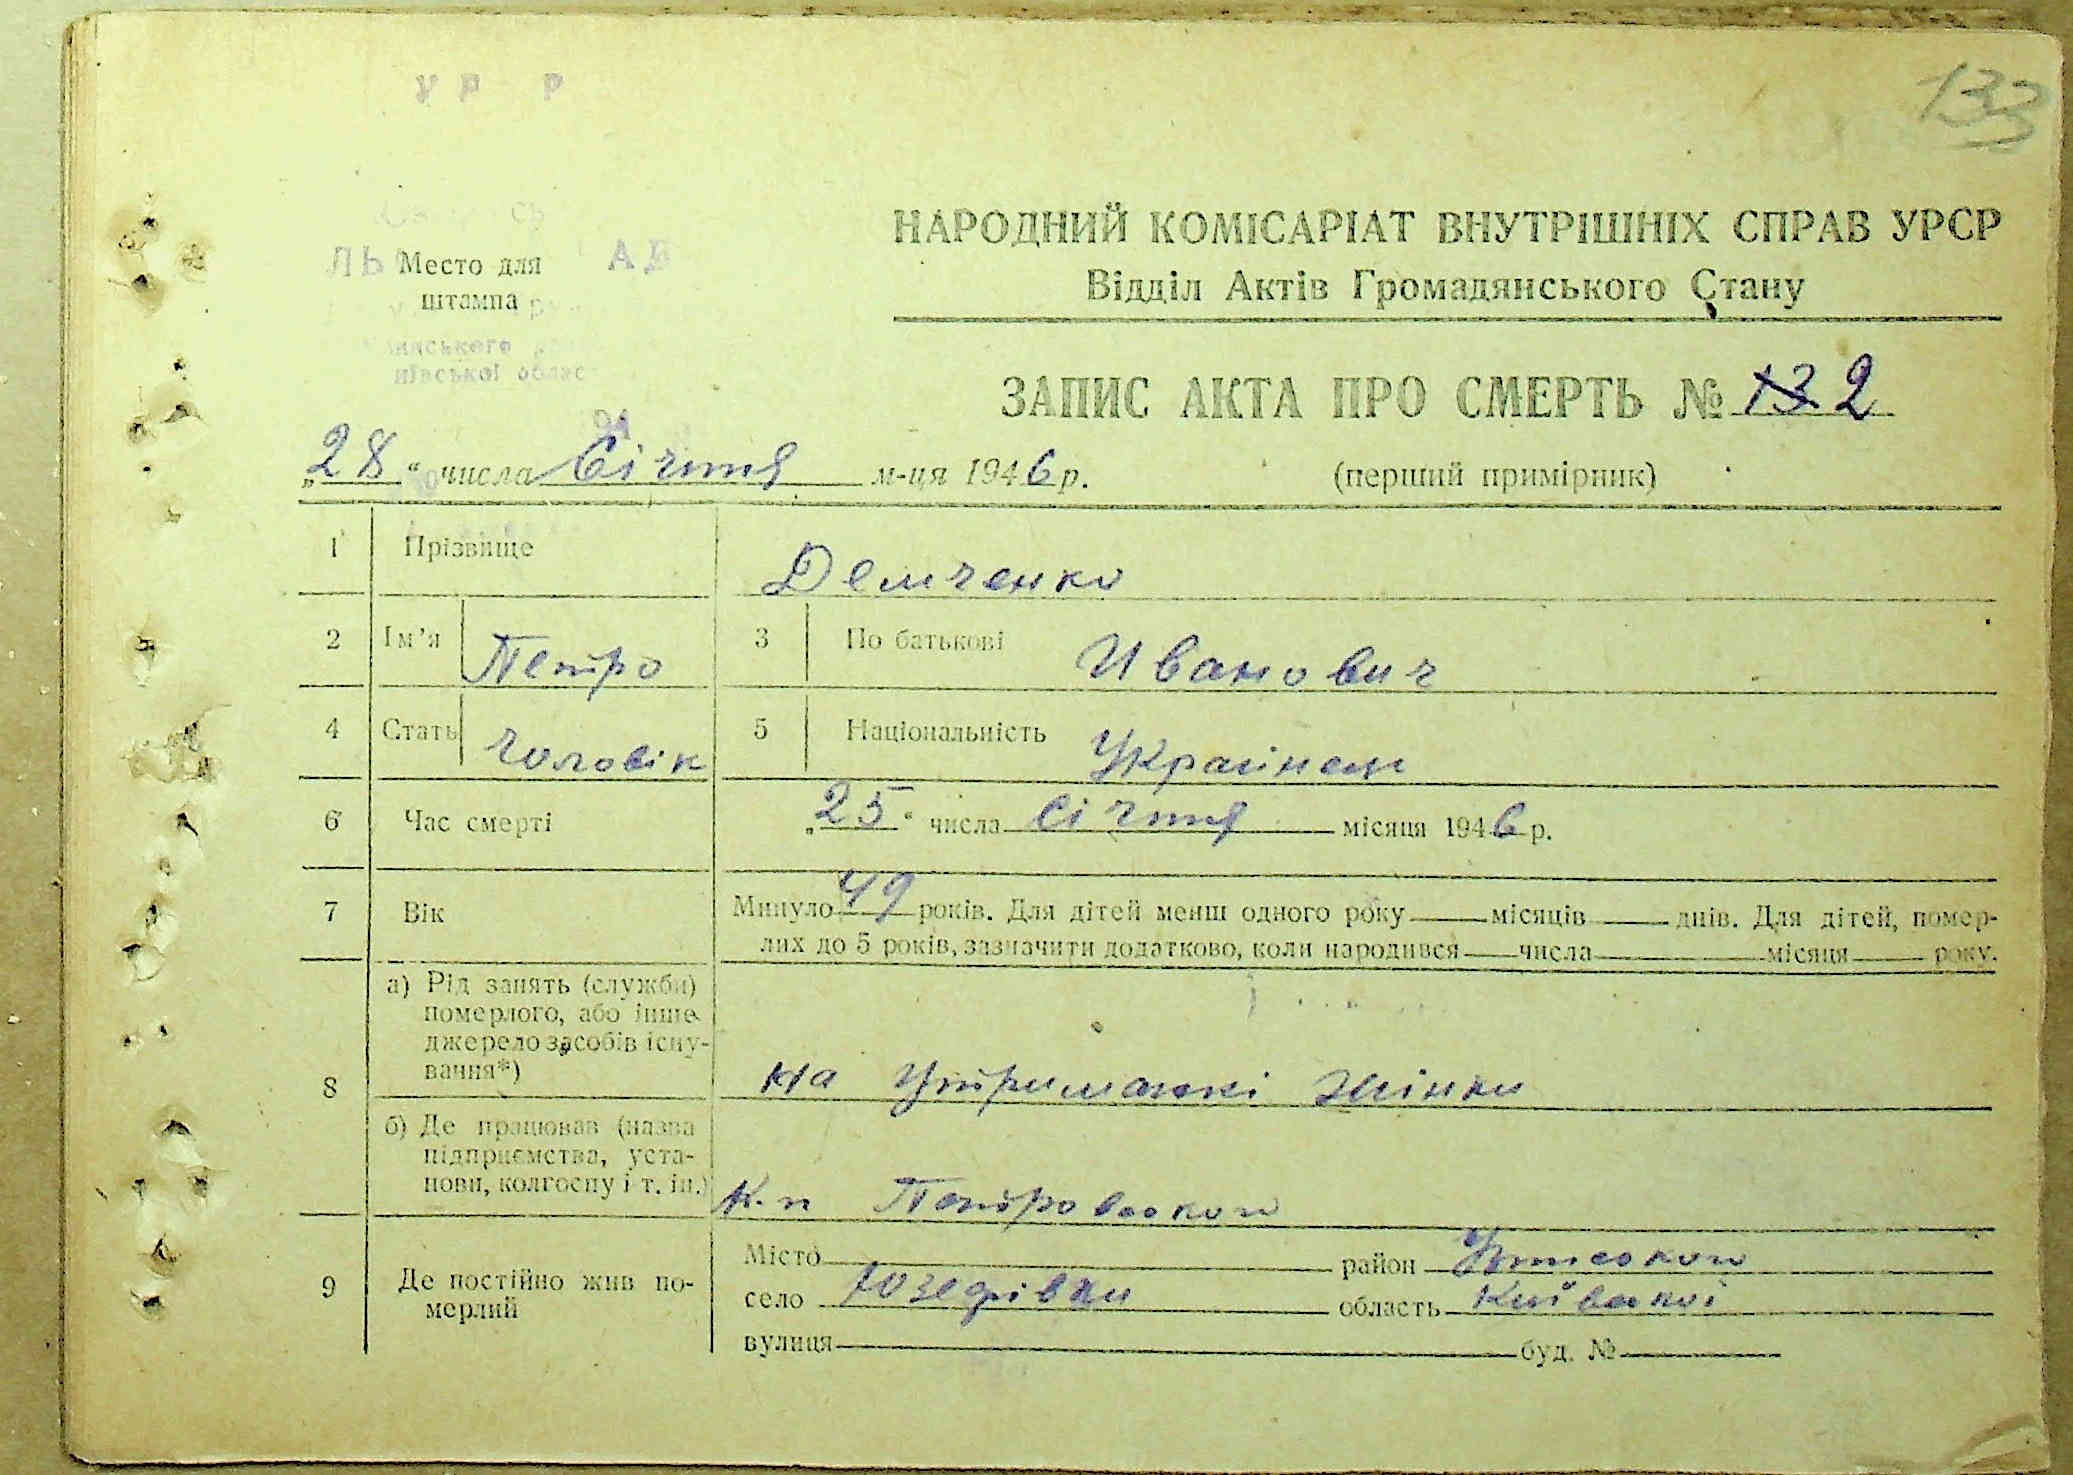 УР Р
133
ЛЬ Место для АД
штампа
нського
ївської облас
НАРОДНИЙ КОМІСАРІАТ ВНУТРІШНІХ СПРАВ УРСР
Відділ Актів Громадянського Стану
ЗАПИС АКТА ПРО СМЕРТЬ № 13 2
„28“ числа Січня м-ця 1946 р. (перший примірник)
1 Прізвище Демченко
2 Ім'я Петро 3 По батькові Иванович
4 Стать Чоловік 5 Національність Українец
6 Час смерті „25“ числа Січня місяця 1946 р.
7 Вік Минуло 49 років. Для дітей менш одного року місяців днів. Для дітей, помер-
лих до 5 років, зазначити додатково, коли народився числа місяця року.
8 а) Рід занять (служби)
померлого, або інше
джерело засобів існу-
вання*) на утриманні жінки
б) Де працював (назва
підприємства, уста-
нови, колгоспу і т. ін.) к-п Петровского
9 Де постійно жив по-
мерлий
Місто район
село Юзефівки область Київскої
вулиця буд. №